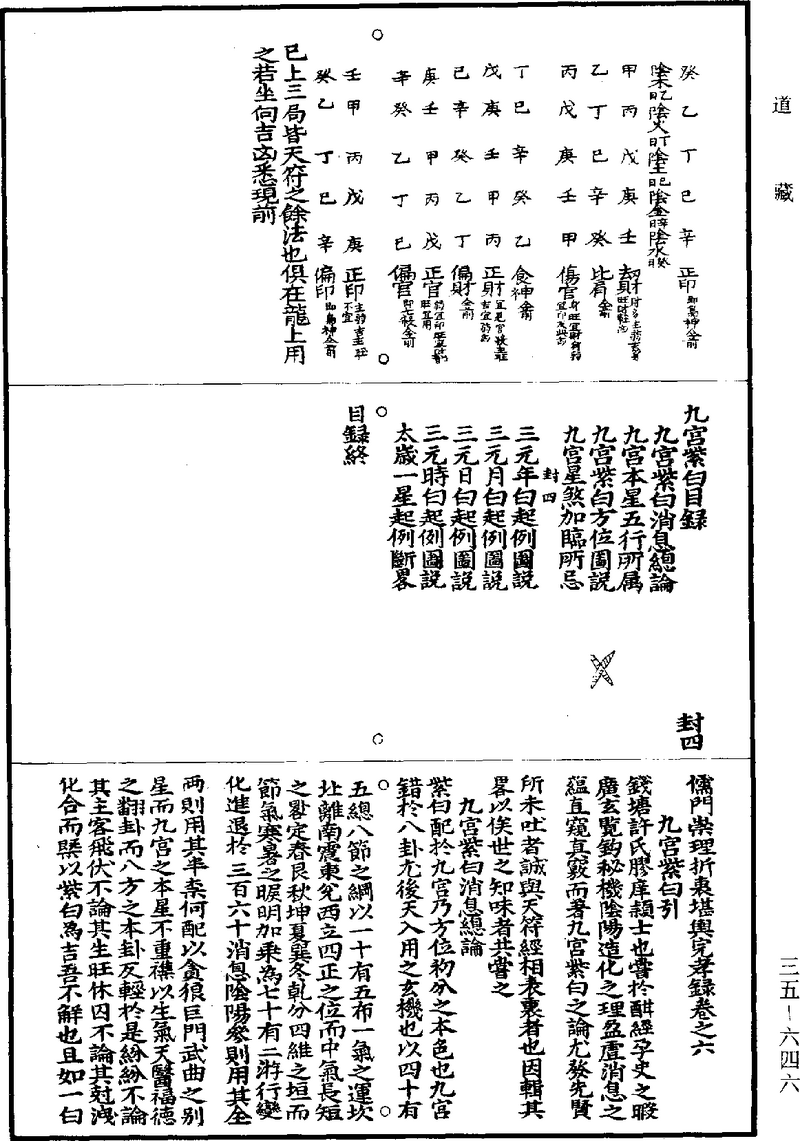 道藏
癸乙丁巳辛正印即梟神仝前
陰木日乙陰火日丁陰土日巳陰金日辛陰水日癸
甲丙戊庚壬刼財
乙丁巳辛癸比肩仝前
丙戊庚壬甲傷官
丁巳辛癸乙食神仝前
戊庚壬甲丙正財
巳辛癸乙丁偏財仝前
庚壬甲丙戊正官
辛癸乙丁巳偏官即七殺仝前
壬甲丙戊庚正印
癸乙丁巳辛偏印即梟神仝前
已上三局皆天符之餘法也俱在龍上用
之若坐向吉凶悉現前
九宮紫白目録
九宮紫白消息總論
九宮本星五行所属
九宮紫白方位圖説
九宮星煞加臨所忌
封四
三元年白起例圖説
三元月白起例圖説
三元日白起例圖説
三元時白起例圖説
太歲一星起例斷畧
目録終
封四
儒門崇理折衷堪輿完孝録卷之六
九宮紫白引
錢塘許氏膠庠頴士也嘗於酣經孕史之暇
廣玄覽鈎秘機陰陽造化之理盈虛消息之
藴直窺真竅而著九宮紫白之論尤發先賢
所未吐者誠與天符經相表裏者也因輯其
畧以俟世之知味者共嘗之
九宮紫白消息總論
紫白配於九宮乃方位粉分之本色也九宮
錯於八卦尤後天入用之玄機也以四十有
五總八節之綱以一十有五布一氣之運坎
北離南震東兌西立四正之位而中氣長短
之晷定春艮秋坤夏巽冬乾分四維之垣而
節氣寒暑之候明加乘為七十有二游行變
化進退於三百六十消息陰陽參則用其全
两則用其半柰何配以貪狼巨門武曲之别
星而九宮之本星不重襍以生氣天醫福德
之翻卦而八方之本卦反輕於是紛紛不論
其主客飛伏不論其生旺休囚不論其尅洩
化合而槩以紫白為吉吾不解也且如一白
三五－六四六